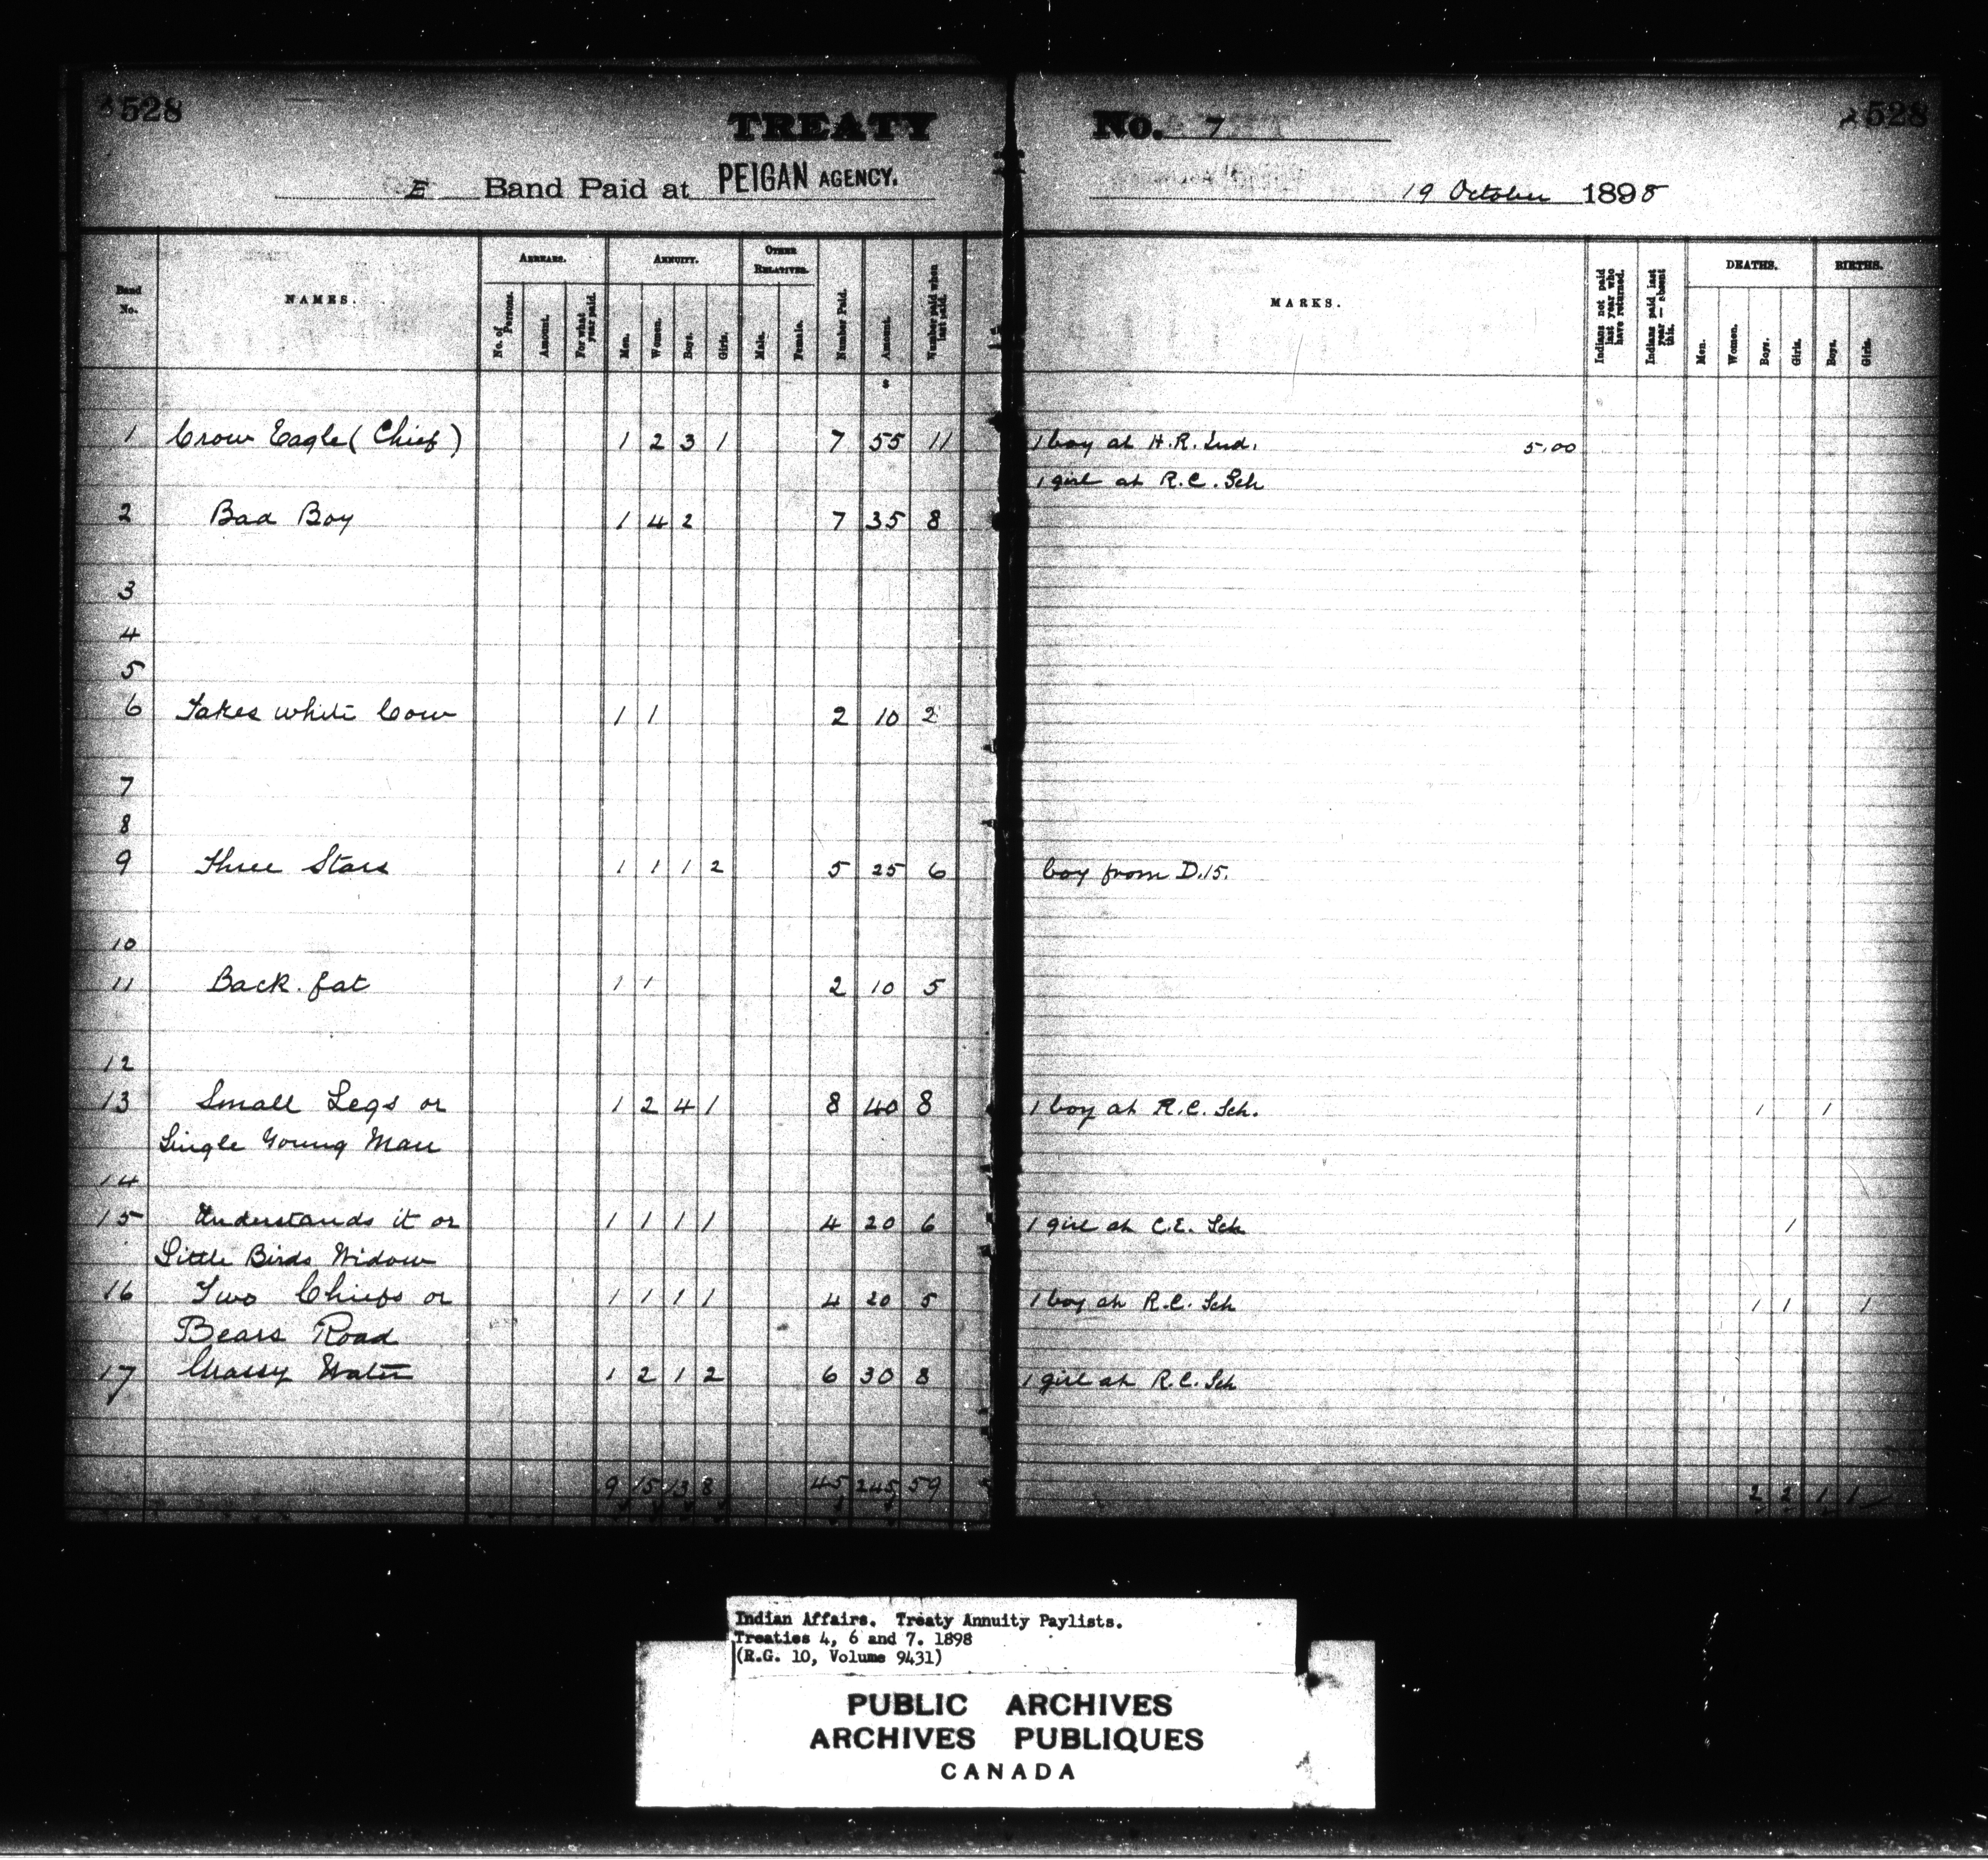 528 TREATY No. 7 528
E Band Paid at PEIGAN AGENCY. 19 October 1898
Band No. NAMES. ARREARS. No. of Persons. Amount. For what year paid. ANNUITY. Men. Women. Boys. Girls. OTHER RELATIVES. Male. Female. Number Paid. Amount. Number paid when last paid. MARKS. Indians not paid last year who have returned. Indians paid last year — absent this. DEATHS. Men. Women. Boys. Girls. BIRTHS. Boys. Girls.
$
1 Crow Eagle (Chief) 1 2 3 1 7 55 11 1 boy at H.R. Ind. 5.00
1 girl at R.C. Sch
2 Bad Boy 1 4 2 7 35 8
3
4
5
6 Takes white Cow 1 1 2 10 2
7
8
9 Three Stars 1 1 1 2 5 25 6 boy from D.15.
10
11 Back fat 1 1 2 10 5
12
13 Small Legs or 1 2 4 1 8 40 8 1 boy at R.C. Sch. 1 1
Single Young Man
14
15 Understands it or 1 1 1 1 4 20 6 1 girl at C.E. Sch 1
Little Birds Widow
16 Two Chiefs or 1 1 1 1 4 20 5 1 boy at R.C. Sch 1 1 1
Bears Road
17 Water 1 2 1 2 6 30 8 1 girl at R.C. Sch
9 15 13 8 45 245 59 2 2 1 1
Indian Affairs. Treaty Annuity Paylists.
Treaties 4, 6 and 7. 1898
(R.G. 10, Volume 9431)
PUBLIC ARCHIVES
ARCHIVES PUBLIQUES
CANADA